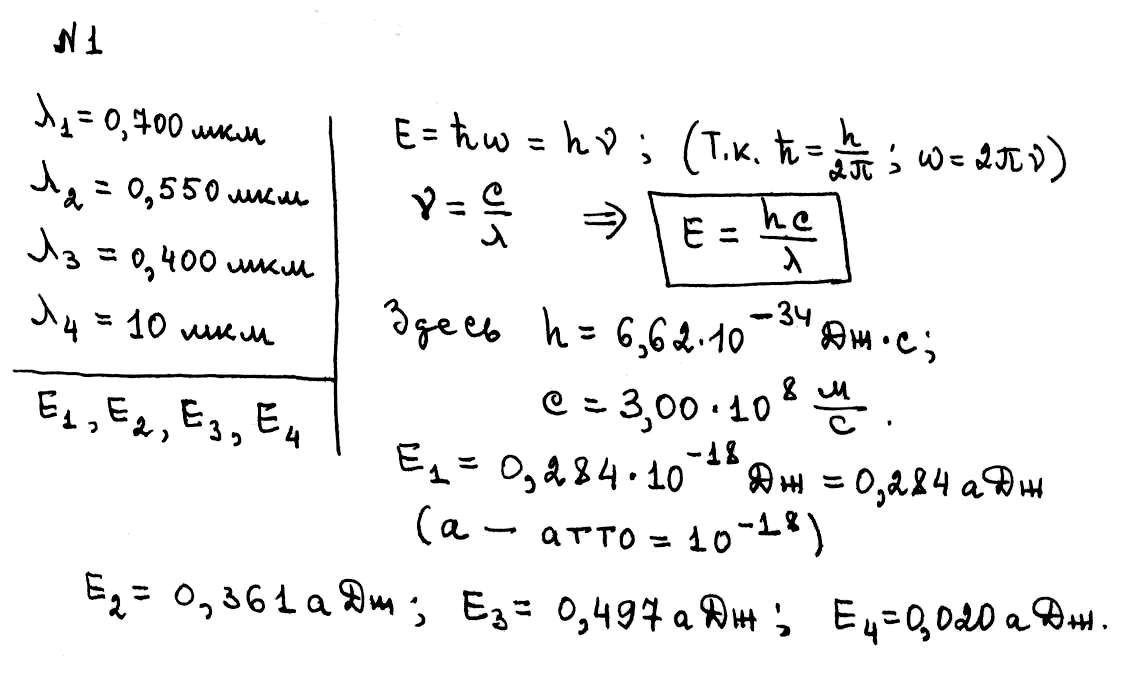 N1
λ₁ = 0,700 мкм
λ₂ = 0,550 мкм
λ₃ = 0,400 мкм
λ₄ = 10 мкм
E₁, E₂, E₃, E₄
E = ħω = hν ; (Т.к. ħ = h/2π ; ω = 2πν)
ν = c/λ ⇒ E = hc/λ
Здесь h = 6,62·10⁻³⁴ Дж·с;
c = 3,00·10⁸ м/с.
E₁ = 0,284·10⁻¹⁸ Дж = 0,284 аДж
(а — атто = 10⁻¹⁸)
E₂ = 0,361 аДж ; E₃ = 0,497 аДж ; E₄ = 0,020 аДж.